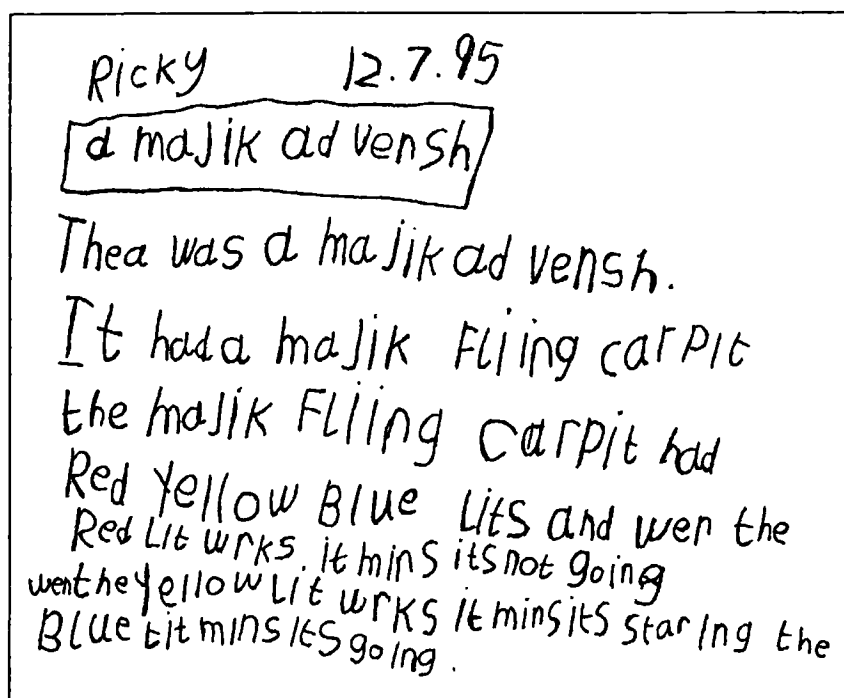 Ricky 12.7.95
a majik ad vensh
Thea was a majik ad vensh.
It had a majik Fliing carpit
the majik Fliing carpit had
Red Yellow Blue Lits and wen the
Red Lit wrks. it mins its not going
wen the Yellow Lit wrks it mins its staring the
Blue tit mins its going.